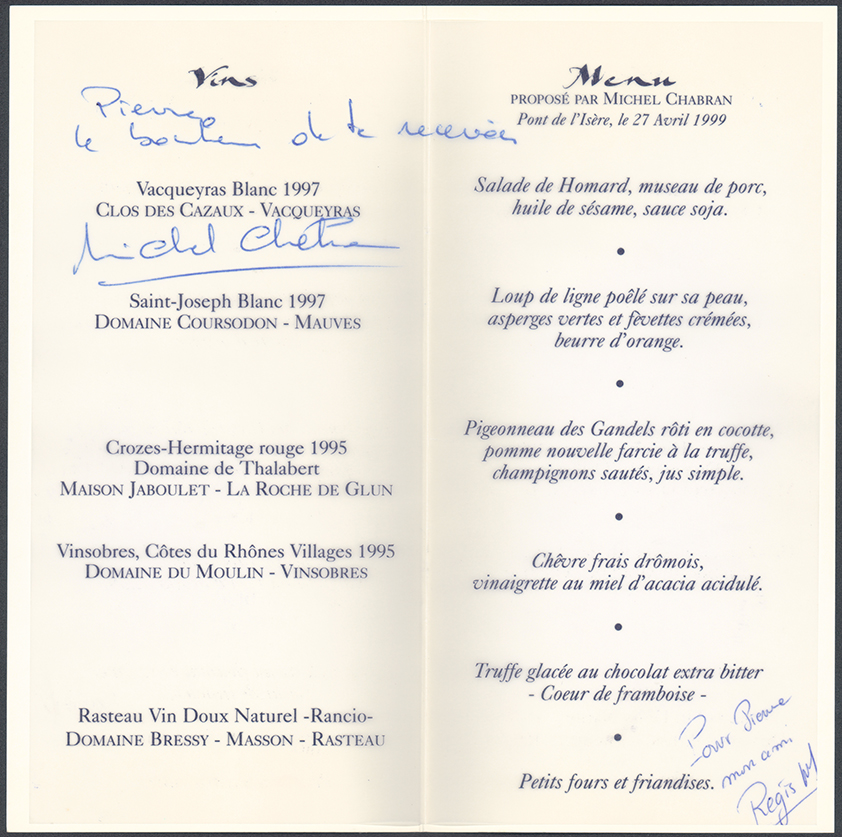 Vins
Pierre
le bonheur de te recevoir
Vacqueyras Blanc 1997
CLOS DES CAZAUX - VACQUEYRAS
Michel Chabran
Saint-Joseph Blanc 1997
DOMAINE COURSODON - MAUVES
Crozes-Hermitage rouge 1995
Domaine de Thalabert
MAISON JABOULET - LA ROCHE DE GLUN
Vinsobres, Côtes du Rhônes Villages 1995
DOMAINE DU MOULIN - VINSOBRES
Rasteau Vin Doux Naturel -Rancio-
DOMAINE BRESSY - MASSON - RASTEAU
Menu
PROPOSÉ PAR MICHEL CHABRAN
Pont de l'Isère, le 27 Avril 1999
Salade de Homard, museau de porc,
huile de sésame, sauce soja.
Loup de ligne poêlé sur sa peau,
asperges vertes et fèvettes crémées,
beurre d'orange.
Pigeonneau des Gandels rôti en cocotte,
pomme nouvelle farcie à la truffe,
champignons sautés, jus simple.
Chêvre frais drômois,
vinaigrette au miel d'acacia acidulé.
Truffe glacée au chocolat extra bitter
- Coeur de framboise -
Petits fours et friandises.
Pour Pierre
mon ami
Regis